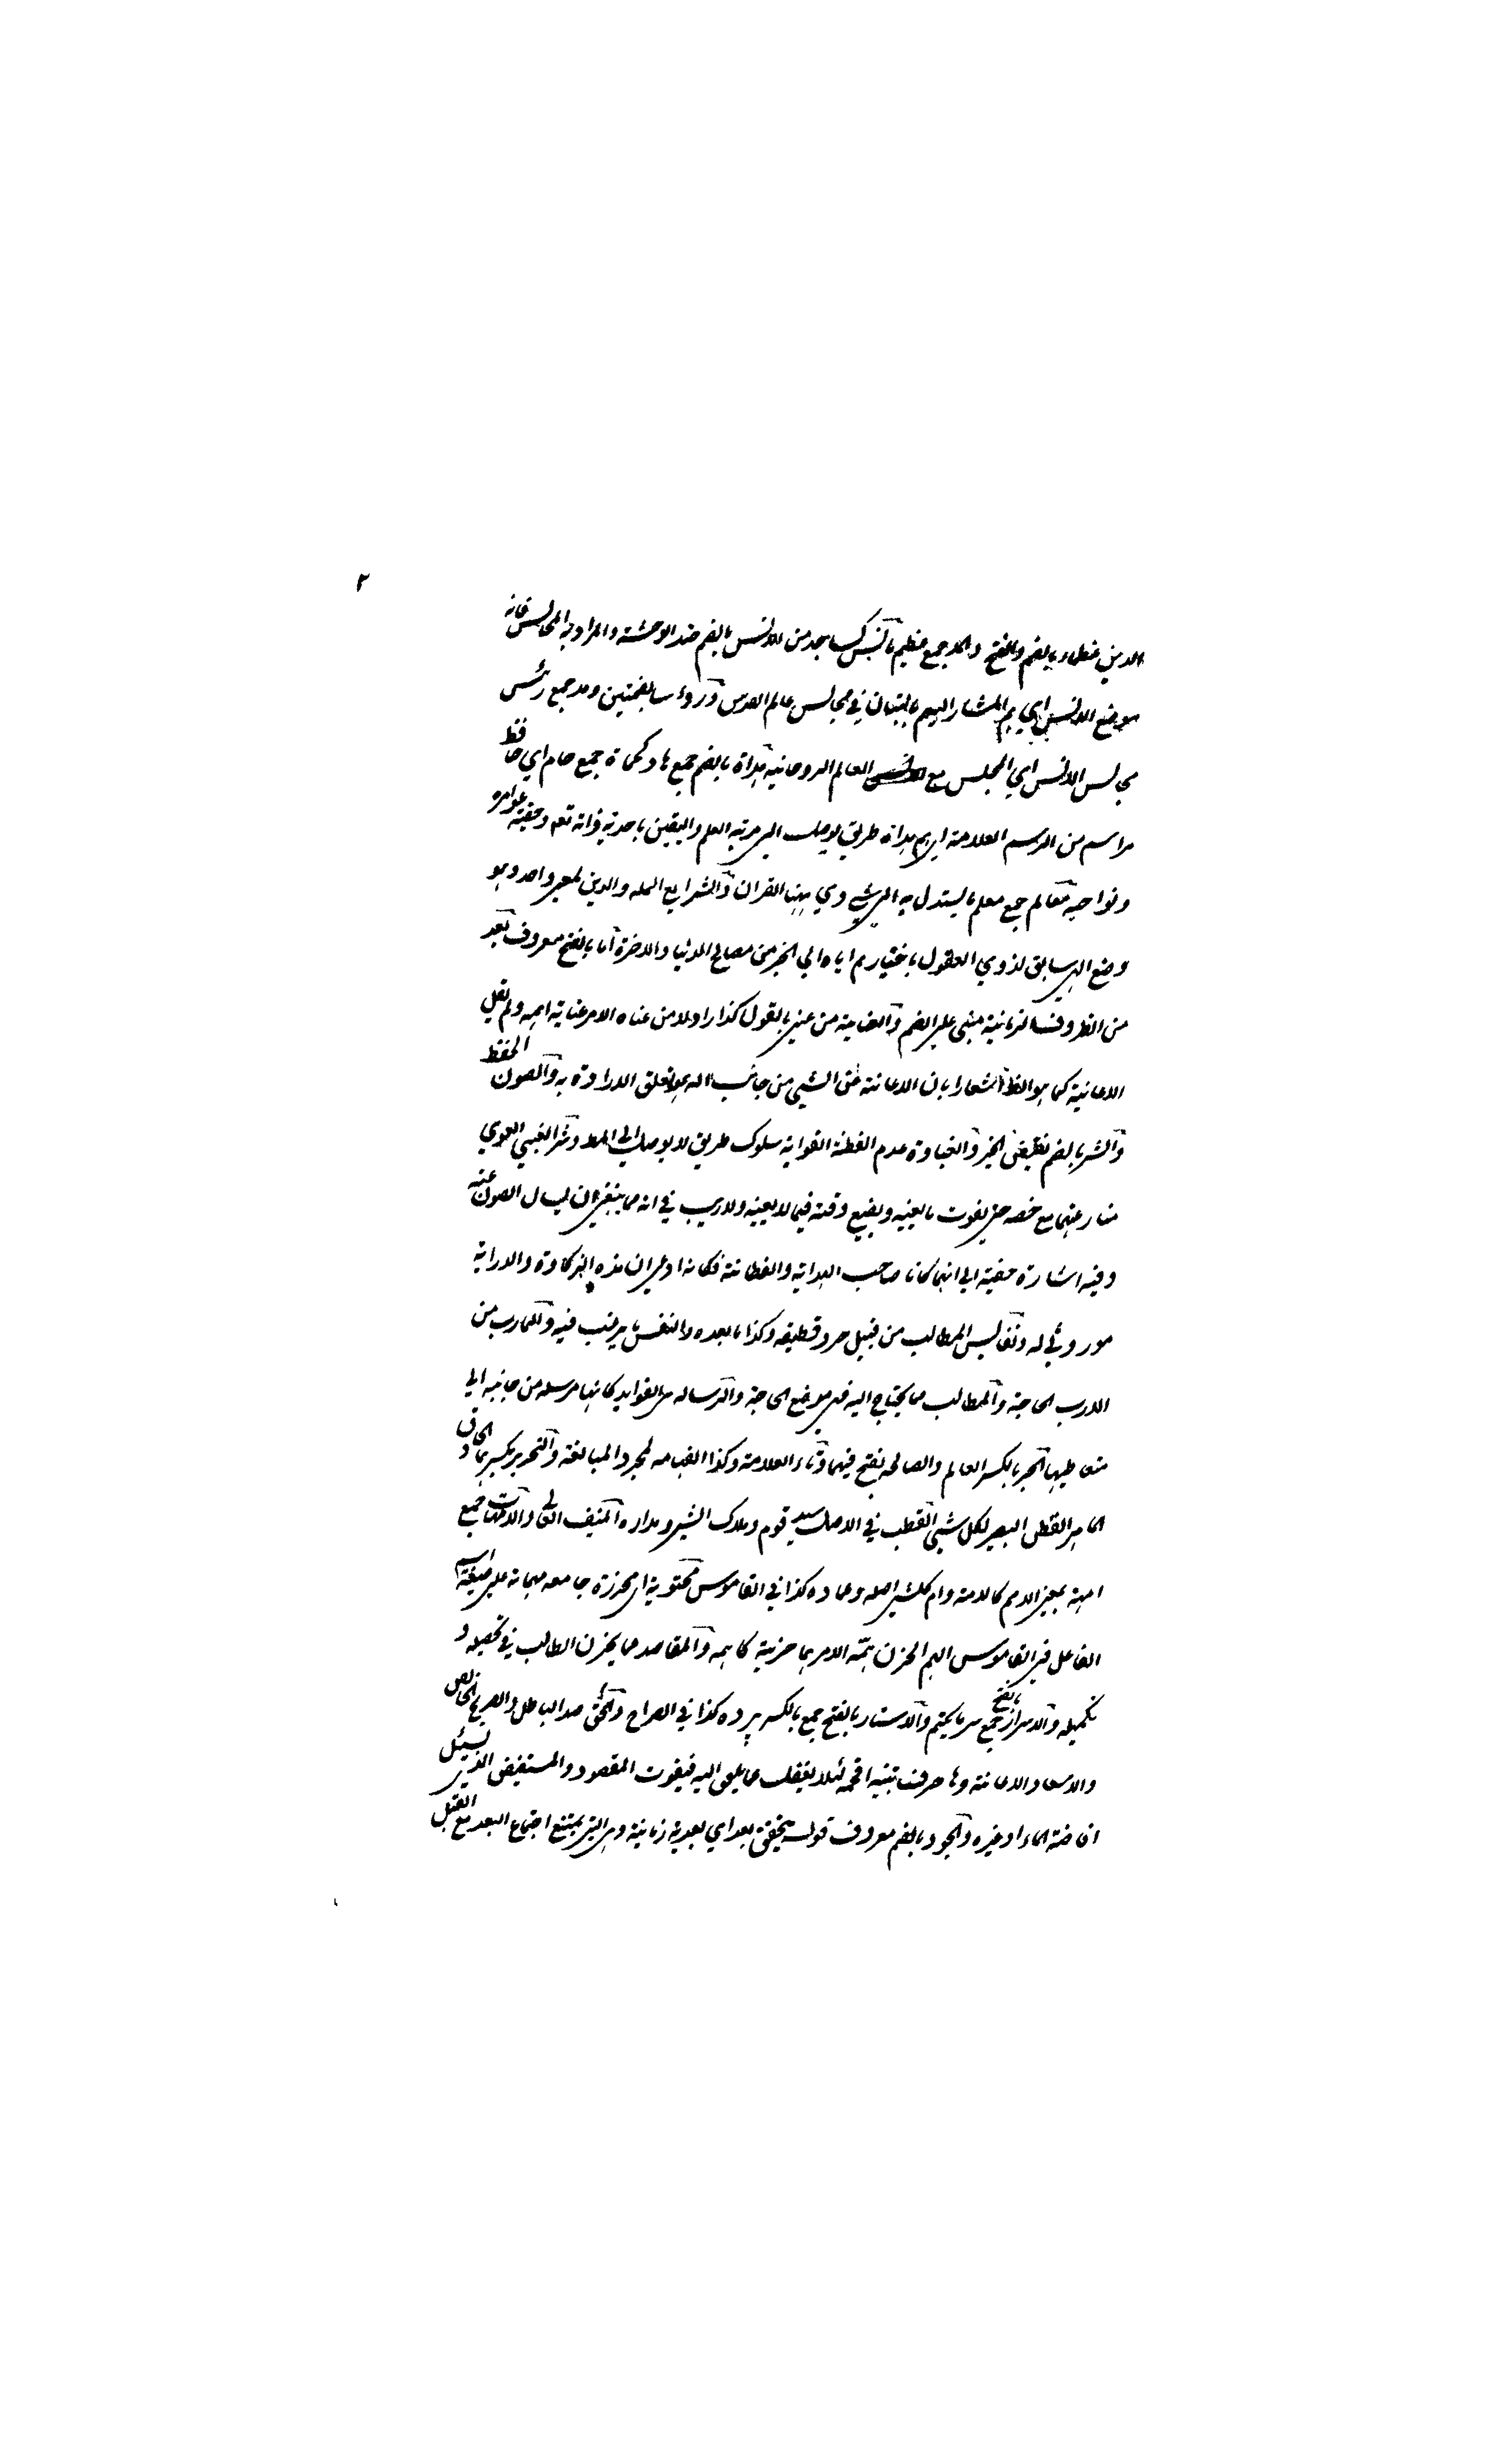 ٢
الدين عظماء بالضم والفتح والمد جمع عظيم مجالس كمساجد من الانس بالضم ضد الوحشة والمراد به المجالس فانه
موضع الانس اي هم المشار اليهم بالبنان في مجالس عالم القدس ورؤسا بضمتين ومد جمع رئس
مجالس الانس اي المجلس مع العالم الروحانية هداة بالضم جمع هاد كحماة جمع حام اي حافظ
مراسم من الرسم العلامة اي هم هداة طريق يوصل الى مرتبة العلم واليقين باحدية ذاته تعم وحقية اوامره
ونواهيه معالم جمع معلم ما يستدل به الى شيء وهي ههنا القران والشرايع المله والدين بمعنى واحد وهو
وضع الهي سابق لذوي العقول باختيارهم اياه الى الخير من مصالح الدنيا والاخرة اما بالفتح معروف بعد
من الظروف الزمانية مبني على الضم والعناية من عنى بالقول كذا اراد لا من عناه الامر عناية اهمه ولم يقل
الاعانية كما هو الظ اشعارا بان الاعانة على الشيء من جانب اله هو تعلق الارادة به والصون الحفظ
والشر بالضم نقيض الخير والغباوة عدم الفطنة الغواية سلوك طريق لا يوصل الى المط وشر الغبي الغوي
منازعتهما مع خصمه حتى يفوت ما يعنيه ويضيع وقته فيما لا يعنيه ولاريب في انه مما ينبغي ان يسال الصون عنه
وفيه اشارة خفية الى انهما كانا صاحب الهداية والفطانة فكانه ادعى ان هذه الذكاوة والدراية
موروثي له ونفايس المطالب من قبيل جرد قطيفه وكذا ما بعده والنفس ما يرغب فيه والمارب من
الارب الحاجة والمطالب ما يحتاج اليه في موضع الحاجة والرسالة هي الفوايد كانها مرسله من جانبه الى
متعاطيها الحبر بالكسر العالم والصالح بفتح فيهما وتاء العلامة وكذا الفهامه لمجرد المبالغة والنحرير بكسرهما الحاذق
الماهر الفطن البصير لكل شيء القطب في الاصل سيد قوم وملاك الشيء ومداره المنيف العالي والامهات جمع
امهة بمعنى الام كالامة وام كل شيء اصله وعماده كذا في القاموس محتوية اي محرزة جامعه مهمات على صيغة اسم
الفاعل في القاموس الهم الحزن همه الامر هما حزنه كاهمه والمقاصد مما يحزن الطالب في تحصيله و
تكميله والاسرار بالفتح جمع سر ما يكتم والاستار بالفتح جمع بالكسر پرده كذا في الصراح والحق ضد الباطل والصريح الخالص
والاسعاد الاعانة وها حرف تنبيه اقحمه لئلا يغفل عما يلقى اليه فيفوت المقصود والمستفيض الذي يسئل
افاضة الماء او غيره والجود بالضم معروف قوله يتحقق بعد اي بعدية زمانية وهي التي يمتنع اجتماع البعد مع القبل